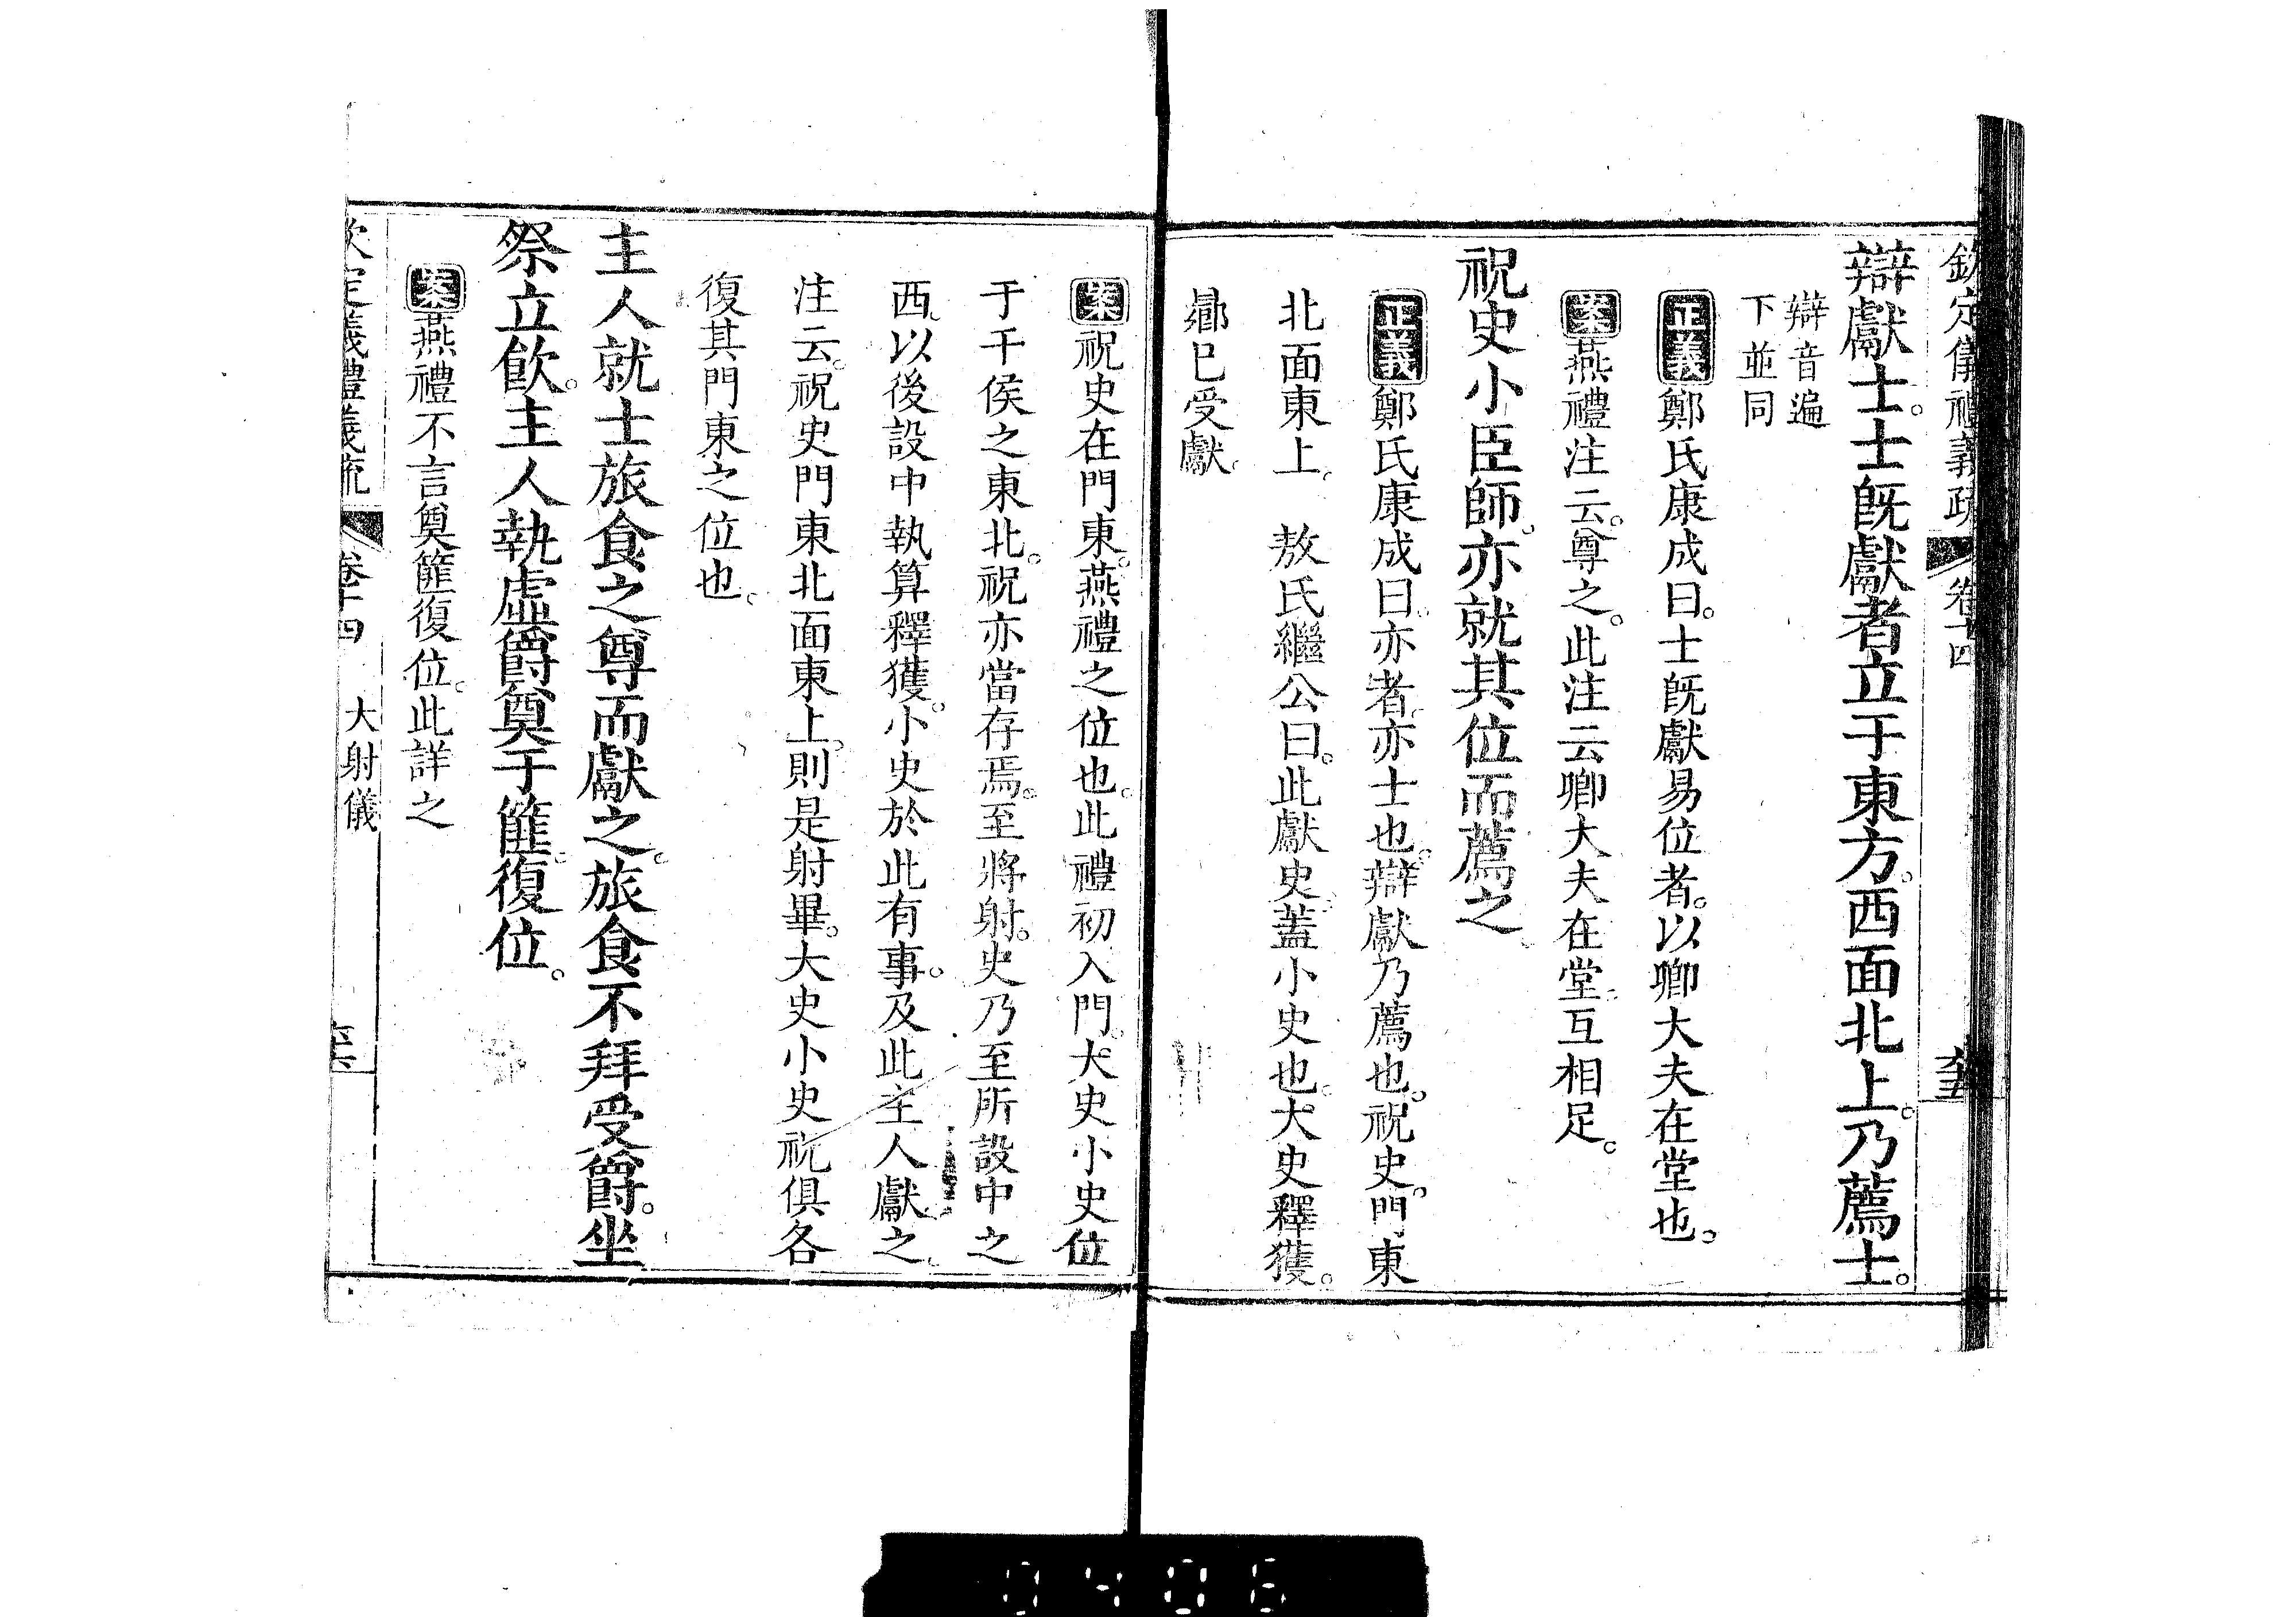 欽定儀禮義疏 卷十四
辯獻士。士既獻者立于東方。西面北上。乃薦士。
辯音遍
下並同
正義鄭氏康成曰。士既獻易位者。以卿大夫在堂也。
案燕禮注云。尊之。此注云卿大夫在堂。互相足。
祝史小臣師。亦就其位而薦之。
正義鄭氏康成曰。亦者。亦士也。辯獻乃薦也。祝史。門東
北面東上。 敖氏繼公曰。此獻史。蓋小史也。大史釋獲。
鄉已受獻。
案祝史在門東。燕禮之位也。此禮初入門。大史小史位
于干侯之東北。祝亦當存焉。至將射。史乃至所設中之
西。以後設中執算釋獲。小史於此有事。及此主人獻之。
注云。祝史門東北面東上。則是射畢。大史小史祝俱各
復其門東之位也。
主人就士旅食之尊而獻之。旅食不拜受爵。坐
祭立飲。主人執虛爵奠于篚。復位。
案燕禮不言奠篚復位。此詳之
欽定儀禮義疏 卷十四 大射儀
0406